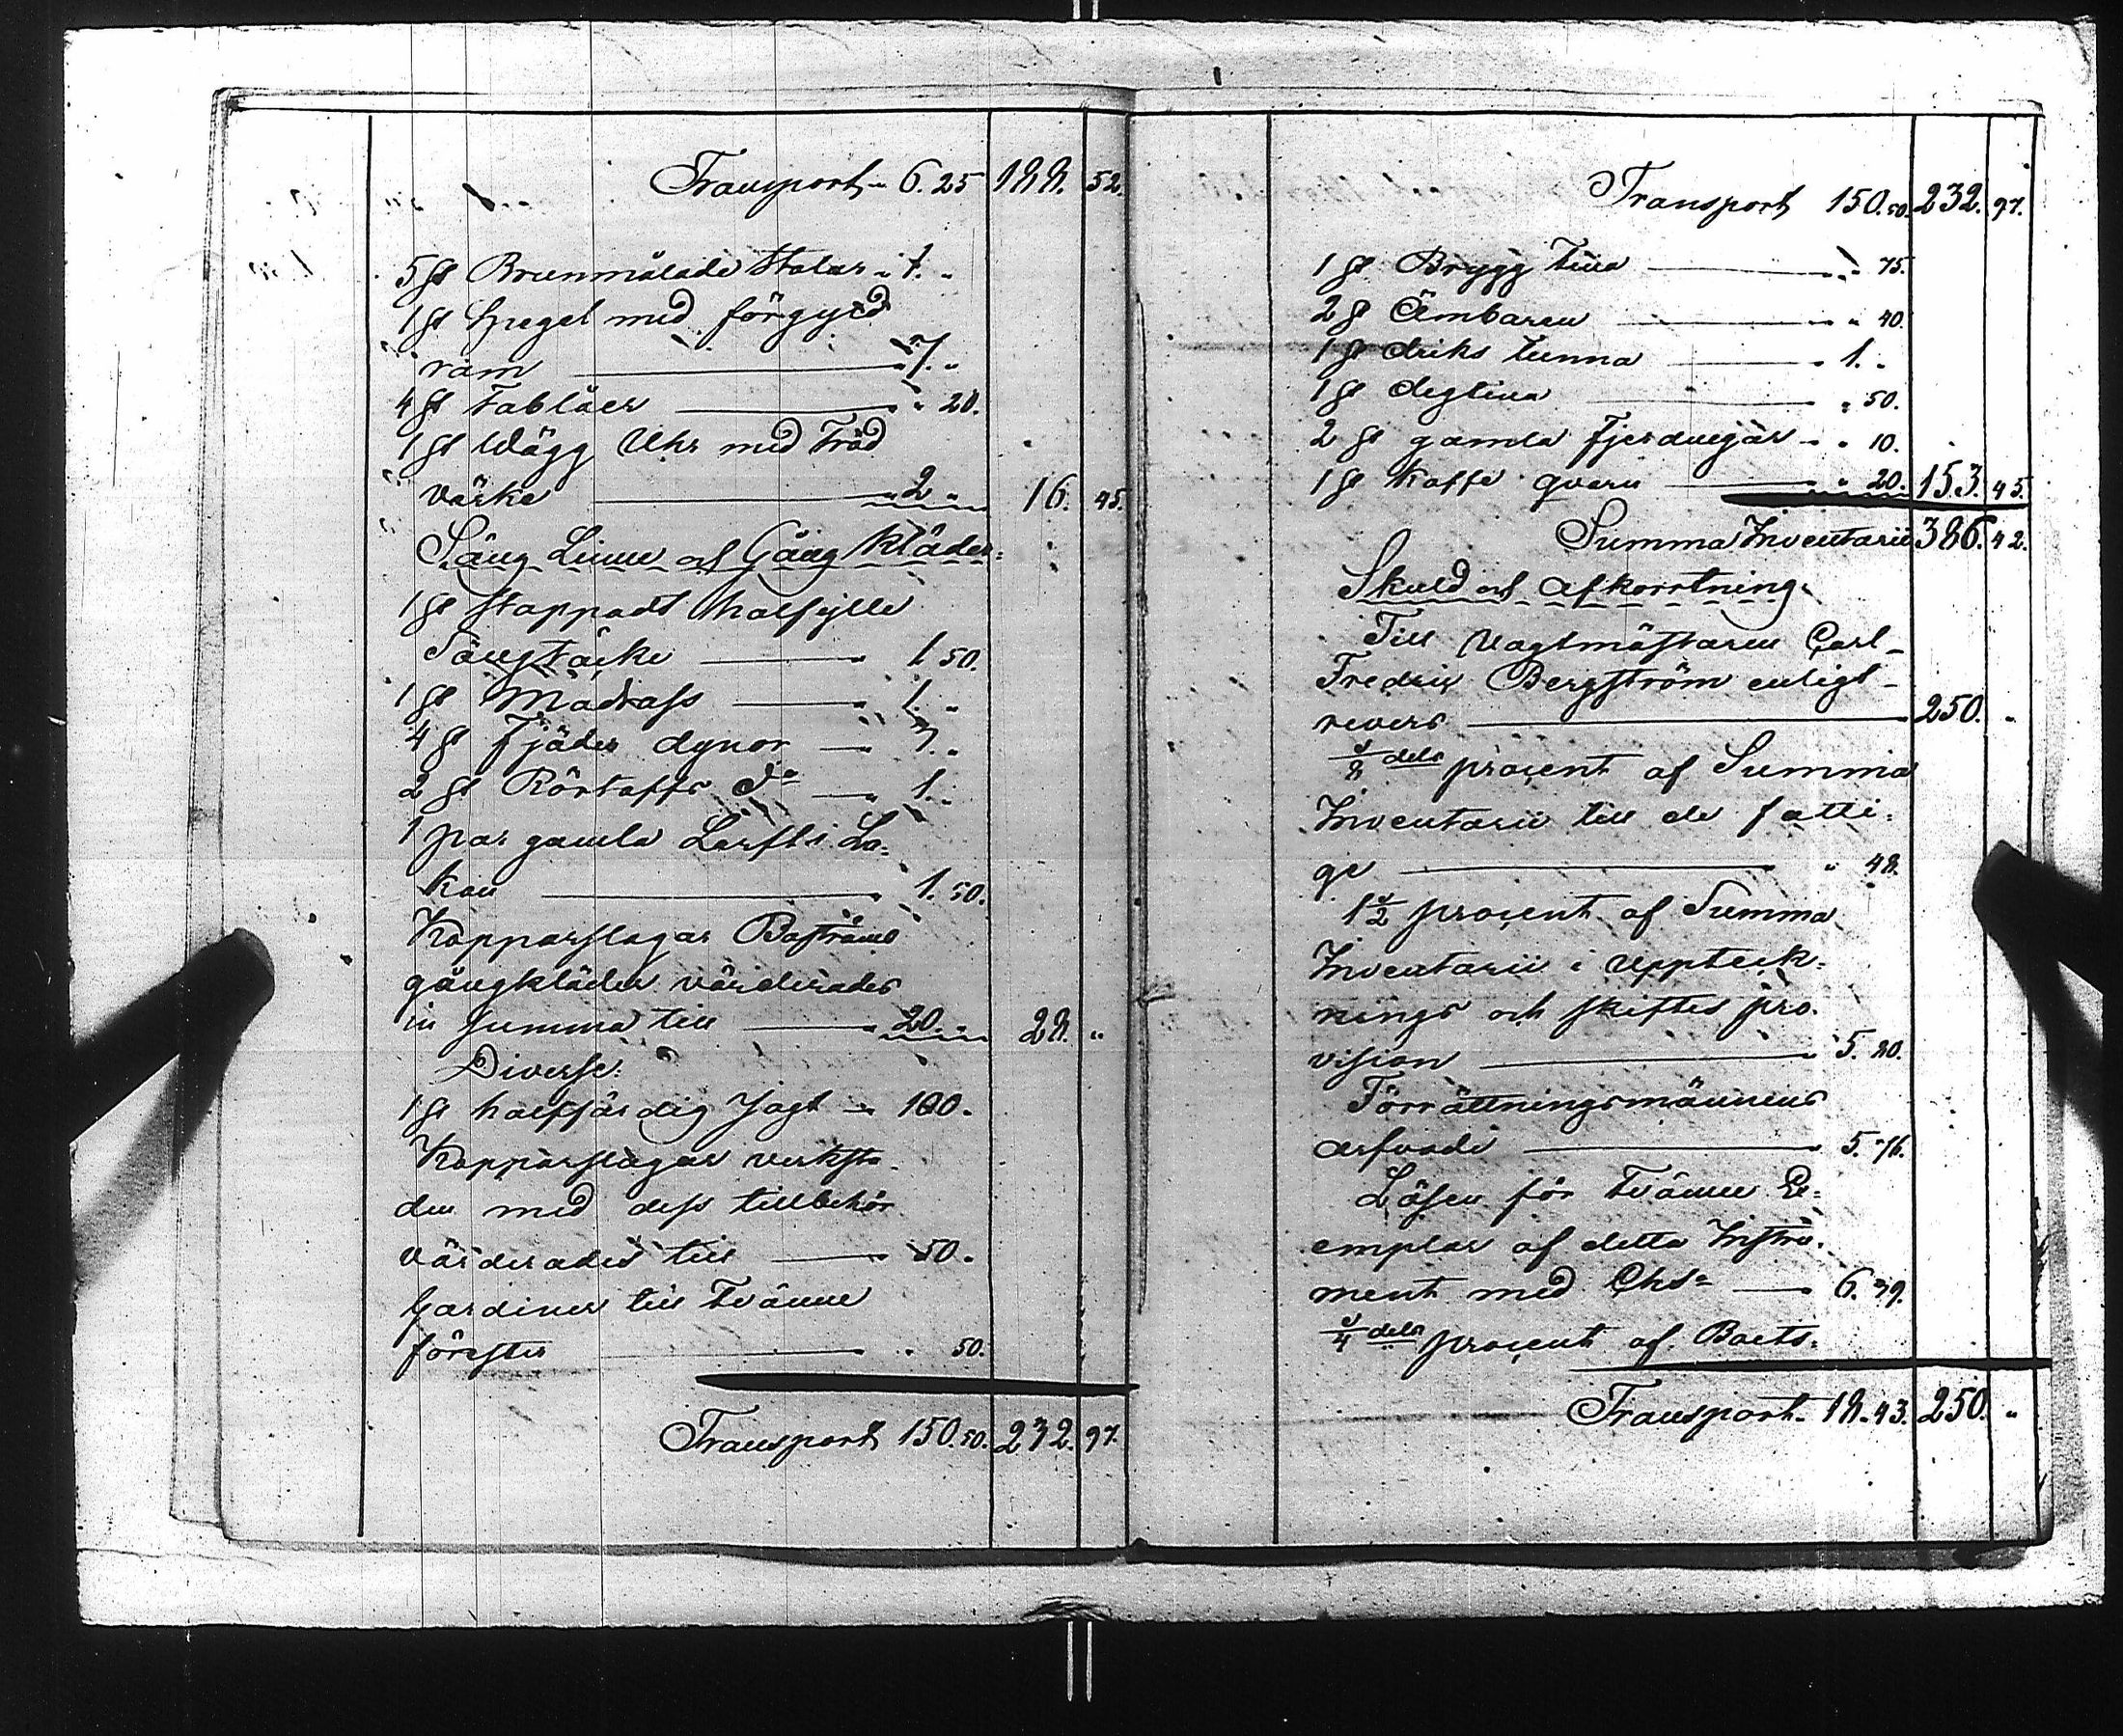 Transport 6.25 188. 52.
5 st Brunmålade Stolar " 1. "
1 st Spegel med förgyld
ram 7. "
4 st Tablåer " 20.
1 st Wägg Uhr med Träd
värke 2 " 16. 45.
Säng Linne och Gång Kläder
1 st stoppadt halfsylle
Sängtäcke 1. 50.
1 st Madrass 1. "
4 st Fjäder dynor 3. "
2 st Rörtaffs do 1. "
1 par gamla Lärfts La-
kan 1. 50.
Kopparslagar Boströms
gångkläder värderades
in summa till 20. " 28. "
Diverse.
1 st halffärdig Jagt 100.
Kopparslagar verksta-
den med dess tillbehör
värderades till 50.
Gardiner till Tvänne
fönster " 50.
Transport 150. 50. 232. 97.
Transport 150. 50. 232. 97.
1 st Brygg tina " 75.
2 st Ämbaren " 40.
1 st driks tunna 1. "
1 st degtina " 50.
2 st gamla Fjerdingar " 10.
1 st Kaffe qvarn " 20. 153. 45.
Summa Inventarii 386. 42.
Skuld och afkortning
Till Vagtmästaren Carl
Fredric Bergström enligt
revers 250. "
1/8 dels procent af Summa
Inventarii till de fatti-
ge " 48.
1 1/2 procent af Summa
Inventarii i Uppteck-
nings och skiftes pro-
vision 5. 80.
Förrättningsmännens
arfvode 5. 76.
Lösen för tvänne Ex-
emplar af detta Instru-
ment med Chs 6. 39.
1/4 dels procent af Boets
Transport 18. 43. 250. "